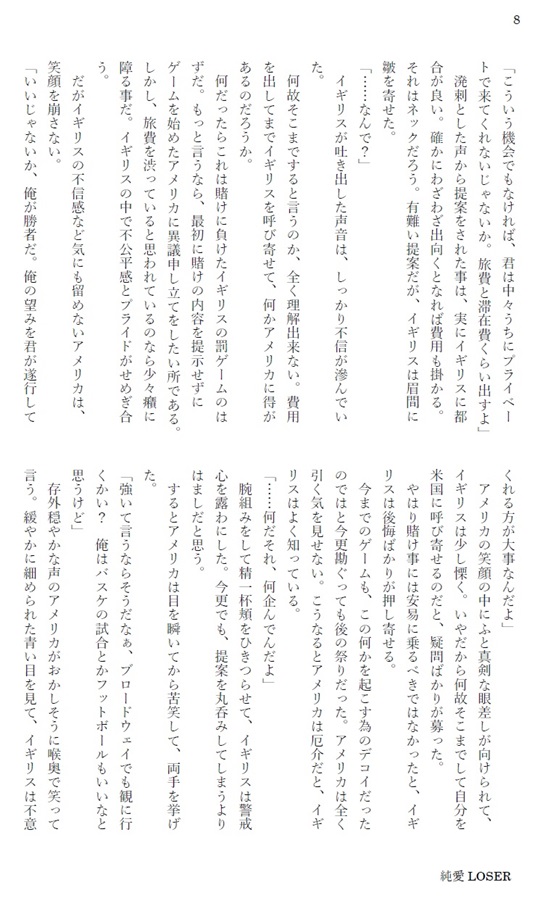 8
「こういう機会でもなければ、君は中々うちにプライベー
トで来てくれないじゃないか。旅費と滞在費くらい出すよ」
　溌剌とした声から提案をされた事は、実にイギリスに都
合が良い。確かにわざわざ出向くとなれば費用も掛かる。
それはネックだろう。有難い提案だが、イギリスは眉間に
皺を寄せた。
「……なんで？」
　イギリスが吐き出した声音は、しっかり不信が滲んでい
た。
　何故そこまですると言うのか、全く理解出来ない。費用
を出してまでイギリスを呼び寄せて、何かアメリカに得が
あるのだろうか。
　何だったらこれは賭けに負けたイギリスの罰ゲームのは
ずだ。もっと言うなら、最初に賭けの内容を提示せずに
ゲームを始めたアメリカに異議申し立てをしたい所である。
しかし、旅費を渋っていると思われているのなら少々癪に
障る事だ。イギリスの中で不公平感とプライドがせめぎ合
う。
　だがイギリスの不信感など気にも留めないアメリカは、
笑顔を崩さない。
「いいじゃないか、俺が勝者だ。俺の望みを君が遂行して
くれる方が大事なんだよ」
　アメリカの笑顔の中にふと真剣な眼差しが向けられて、
イギリスは少し慄く。いやだから何故そこまでして自分を
米国に呼び寄せるのだと、疑問ばかりが募った。
　やはり賭け事には安易に乗るべきではなかったと、イギ
リスは後悔ばかりが押し寄せる。
　今までのゲームも、この何かを起こす為のデコイだった
のではと今更勘ぐっても後の祭りだった。アメリカは全く
引く気を見せない。こうなるとアメリカは厄介だと、イギ
リスはよく知っている。
「……何だそれ、何企んでんだよ」
　腕組みをして精一杯頬をひきつらせて、イギリスは警戒
心を露わにした。今更でも、提案を丸呑みしてしまうより
はましだと思う。
　するとアメリカは目を瞬いてから苦笑して、両手を挙げ
た。
「強いて言うならそうだなぁ、ブロードウェイでも観に行
くかい？　俺はバスケの試合とかフットボールもいいなと
思うけど」
　存外穏やかな声のアメリカがおかしそうに喉奥で笑って
言う。緩やかに細められた青い目を見て、イギリスは不意
純愛 LOSER